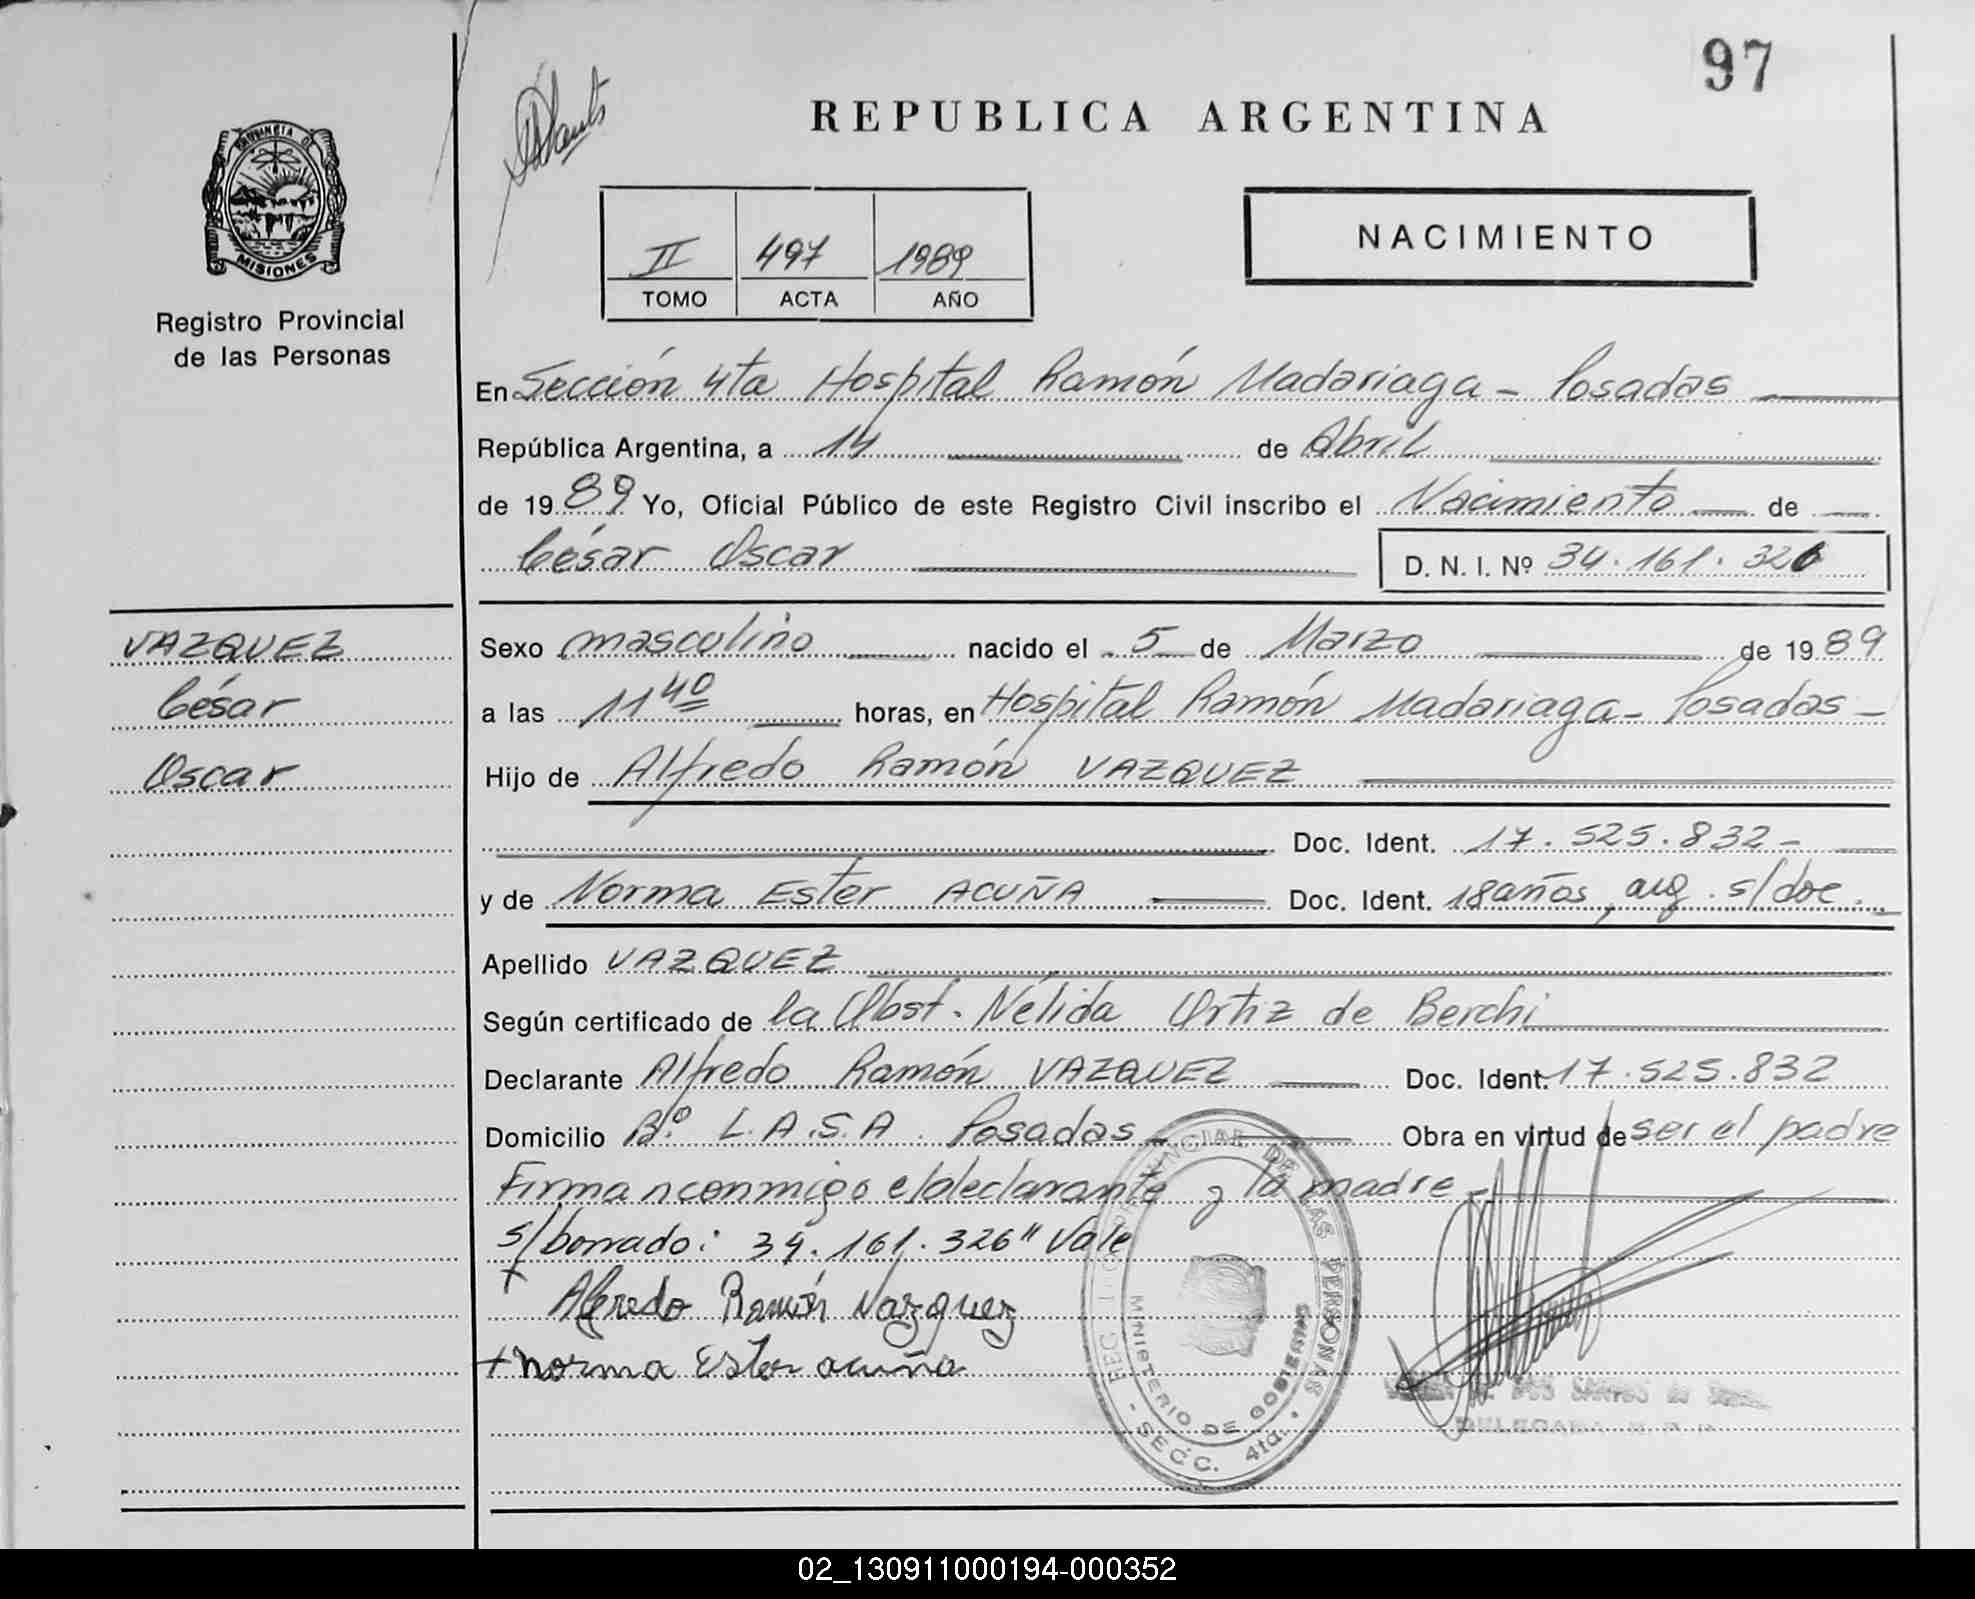 97
REPUBLICA ARGENTINA
PROVINCIA DE
MISIONES
Registro Provincial
de las Personas
II 497 1989
TOMO ACTA AÑO
NACIMIENTO
En Sección 4ta Hospital Ramón Madariaga - Posadas
República Argentina, a 14 de Abril
de 1989 Yo, Oficial Público de este Registro Civil inscribo el Nacimiento de
César Oscar D. N. I. Nº 34.161.326
VAZQUEZ
César
Oscar
Sexo masculino nacido el 5 de Marzo de 1989
a las 11 40 horas, en Hospital Ramón Madariaga - Posadas -
Hijo de Alfredo Ramón VAZQUEZ
Doc. Ident. 17.525.832 -
y de Norma Ester ACUÑA Doc. Ident. 18 años, arg. s/doc.
Apellido VAZQUEZ
Según certificado de la Obst. Nélida Ortiz de Berchi
Declarante Alfredo Ramón VAZQUEZ Doc. Ident. 17.525.832
Domicilio Bº L.A.S.A. Posadas - Obra en virtud de ser el padre
Firman conmigo el declarante y la madre -
s/borrado: 34.161.326" Vale
+ Alfredo Ramón Vazquez
+ norma Ester acuña
PROVINCIAL DE LAS PERSONAS
MINISTERIO DE GOBIERNO
- SECC. 4ta. -
DOS SANTOS de
DELEGADA
02_130911000194-000352